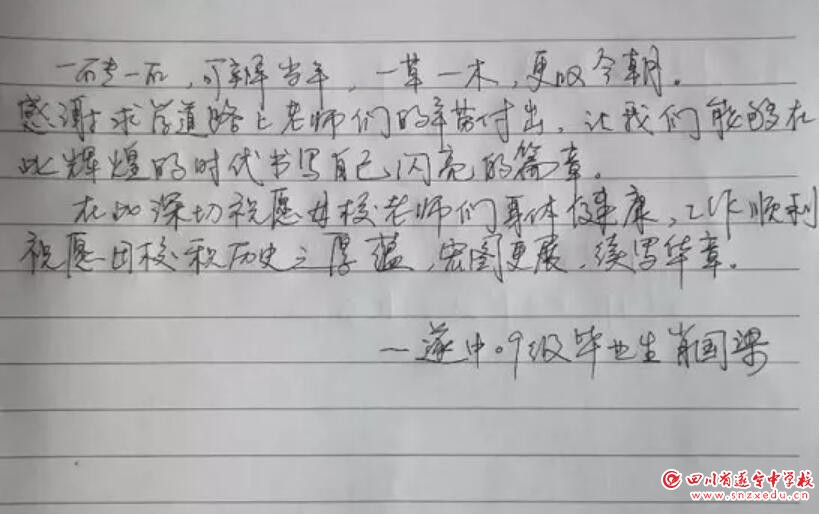 一砖一石，可辨当年，一草一木，更吸今朝。
感谢求学道路上老师们的辛劳付出，让我们能够在
此辉煌的时代书写自己闪亮的篇章。
在此深切祝愿母校老师们身体健康，工作顺利
祝愿母校积历史之厚蕴，宏图更展，续写华章。
—遂中09级毕业生肖国梁
四川省遂宁中学校
www.snzxedu.cn